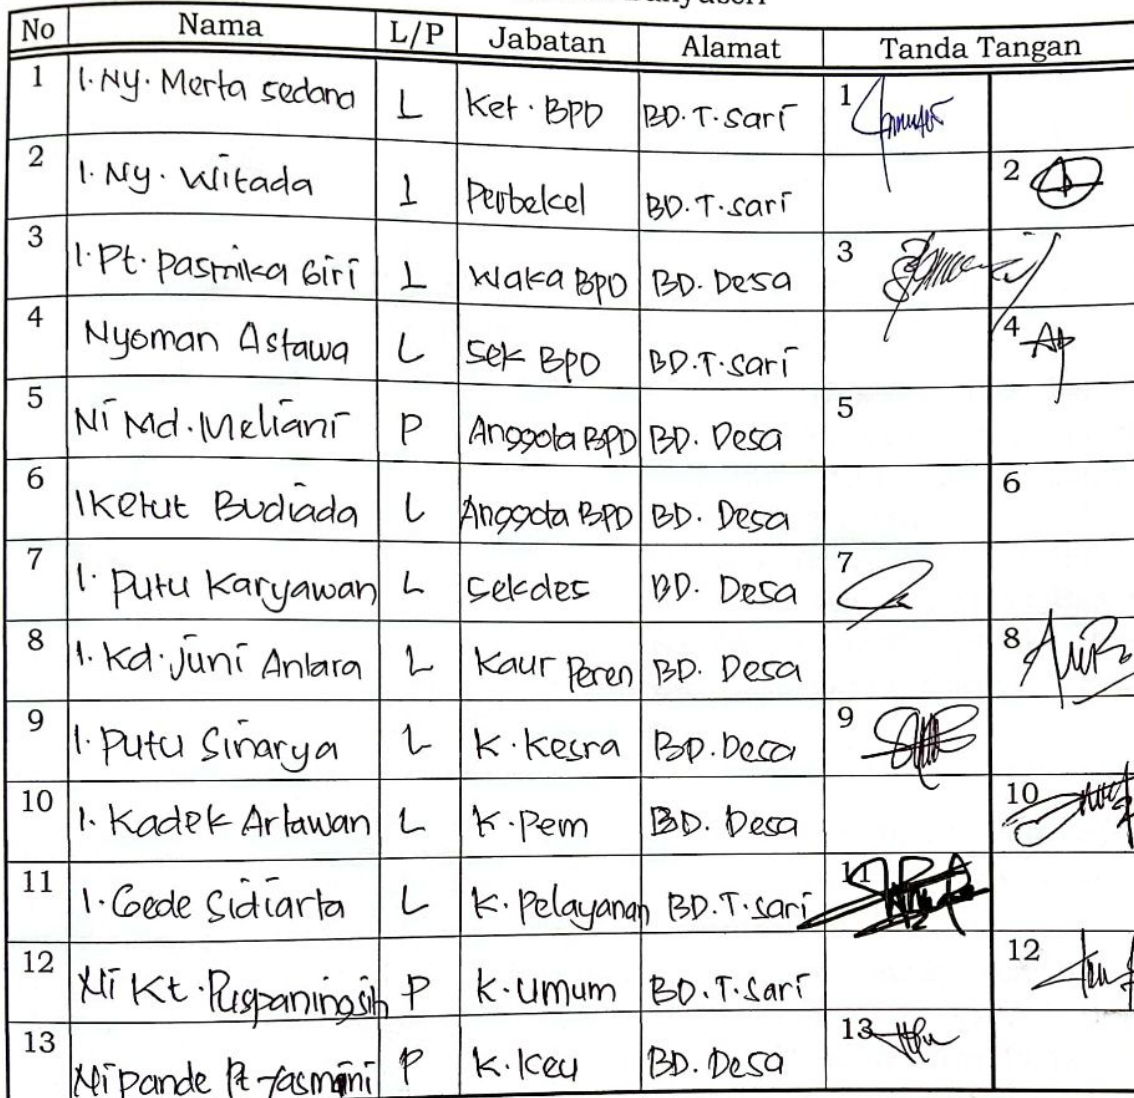 No Nama L/P Jabatan Alamat Tanda Tangan
1 I. Ny. Merta sedana L Ket. BPD BD. T. Sari 1
2 I. Ny. Witada L Perbekel BD. T. Sari 2
3 I. Pt. pasmika Giri L Waka BPD BD. Desa 3
4 Nyoman Astawa L Sek BPD BD. T. Sari 4
5 Ni Md. Meliani P Anggota BPD BD. Desa 5
6 I Ketut Budiada L Anggota BPD BD. Desa 6
7 I. Putu Karyawan L Sekdes BD. Desa 7
8 I. Kd. Juni Antara L Kaur Peren BD. Desa 8
9 I. Putu Sinarya L K. Kesra BD. Desa 9
10 I. Kadek Artawan L K. Pem BD. Desa 10
11 I. Gede Sidiarta L K. Pelayanan BD. T. Sari 11
12 Ni Kt. Puspaningsih P K. Umum BD. T. Sari 12
13 Ni pande Pt Yasmini P K. Keu BD. Desa 13